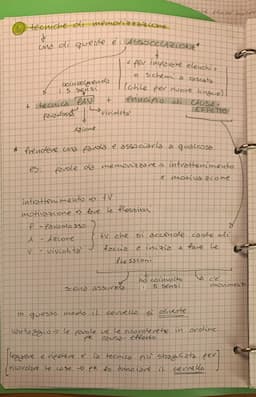 tecniche di memorizzazione
una di queste è l'ASSOCIAZIONE*
x per imparare elenchi
o schemi a cascata
(utile per nuove lingue)
coinvolgendo
i 5 sensi
tecnica PAV + principio di CAUSA-
EFFETTO
paradosso vividità
azione
* Prendere una parola e associarla a qualcosa
es: parole da memorizzare → intrattenimento
e motivazione
intrattenimento → TV
motivazione → fare le flessioni
P - PARADOSSO
A - AZIONE
V - VIVIDITÀ
TV che si accende cade di
faccia e inizia a fare le
flessioni
scena assurda
ho coinvolto
i 5 sensi
c'è
movimento
in questo modo il cervello si diverte
vantaggio → le parole ce le ricorderete in ordine
causa-effetto
leggere e ripetere è la tecnica più sbagliata per
ricordare le cose → fa annoiare il cervello